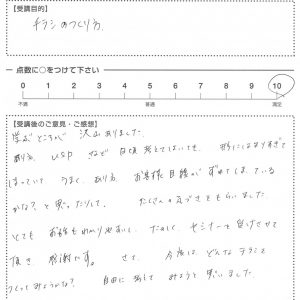 【受講目的】
チラシのつくり方
点数に○をつけて下さい
0 1 2 3 4 5 6 7 8 9 10
不満 普通 満足
【受講後のご意見・ご感想】
学ぶところが 沢山ありました。
あり方、USP など 日頃 考えてはいても、形にはまりすぎて
しまっていて うまく、あり方、お客様目線が ずれてしまっている
かな？と思ったりして、 たくさんの気づきをもらいました。
とても お話もわかりやすいし、ためになるセミナーを受けさせて
頂き 感謝です。 さて、 今度は どんなチラシを
つくってみようかな？ 自由に 考えて みようと思いました。